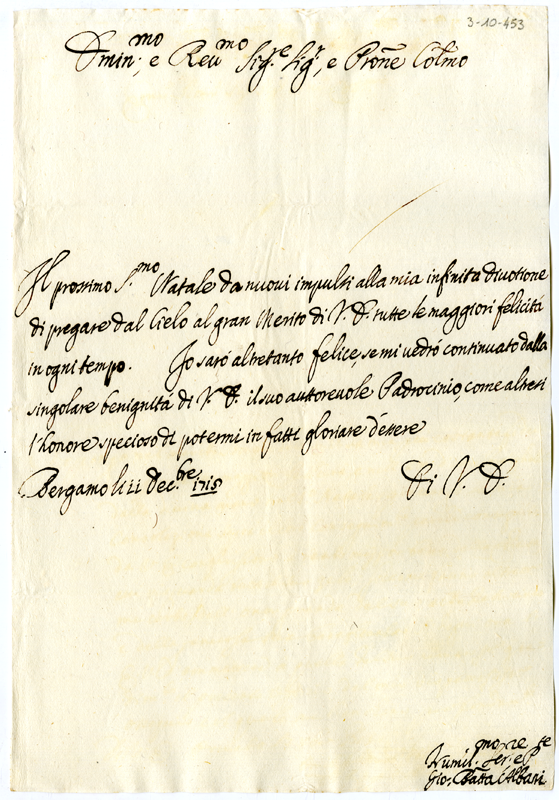 3-10-453
Emin.mo e Reu.mo Sig.e Sig.r, e Prōne Colmo
Il prossimo S.mo Natale da nuoui impulsi alla mia infinita diuotione
di pregare dal Cielo al gran Merito di V. E. tutte le maggiori felicità
in ogni tempo. Io sarò altretanto felice, se mi vedrò continuato dalla
singolare benignità di V. E. il suo auttoreuole Padrocinio, come altresi
l'honore specioso di potermi in fatti gloriare d'essere
Bergamo li 11 Dec.bre 1715
Di V. E.
Humil.mo
Gio: Batta Albani